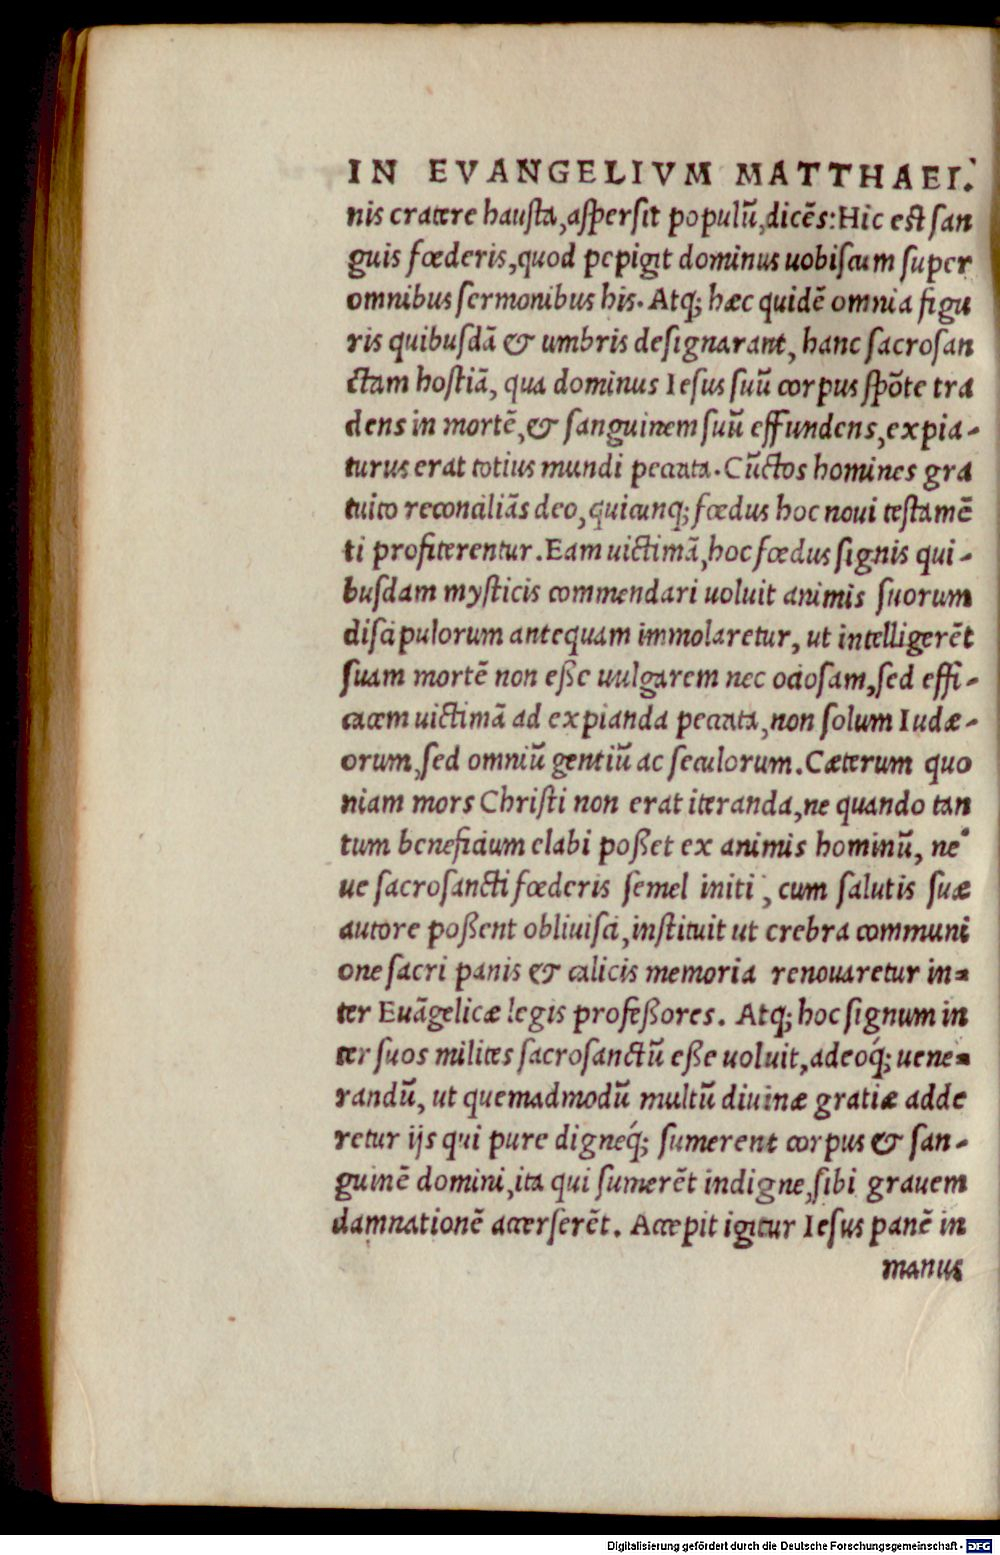 IN EVANGELIVM MATTHAEI.
nis cratere hausta, aspersit populũ, dicẽs: Hic est san
guis fœderis, quod pepigit dominus uobiscum super
omnibus sermonibus his. Atq; hæc quidẽ omnia figu
ris quibusdã & umbris designarant, hanc sacrosan
ctam hostiã, qua dominus Iesus suũ corpus spõte tra
dens in mortẽ, & sanguinem suũ effundens, expia-
turus erat totius mundi peccata. Cũctos homines gra
tuito reconciliãs deo, quicunq; fœdus hoc noui testamẽ
ti profiterentur. Eam uictimã, hoc fœdus signis qui-
busdam mysticis commendari uoluit animis suorum
discipulorum antequam immolaretur, ut intelligerẽt
suam mortẽ non eße uulgarem nec ociosam, sed effi-
cacem uictimã ad expianda peccata, non solum Iudæ-
orum, sed omniũ gentiũ ac seculorum. Cæterum quo
niam mors Christi non erat iteranda, ne quando tan
tum beneficium elabi poßet ex animis hominũ, ne
ue sacrosancti fœderis semel initi, cum salutis suæ
autore poßent obliuisci, instituit ut crebra communi
one sacri panis & calicis memoria renouaretur in=
ter Euãgelicæ legis profeßores. Atq; hoc signum in
ter suos milites sacrosanctũ eße uoluit, adeoq́; uene=
randũ, ut quemadmodũ multũ diuinæ gratiæ adde
retur ijs qui pure digneq́; sumerent corpus & san-
guinẽ domini, ita qui sumerẽt indigne, sibi grauem
damnationẽ accerserẽt. Accepit igitur Iesus panẽ in
manus
Digitalisierung gefördert durch die Deutsche Forschungsgemeinschaft - DFG